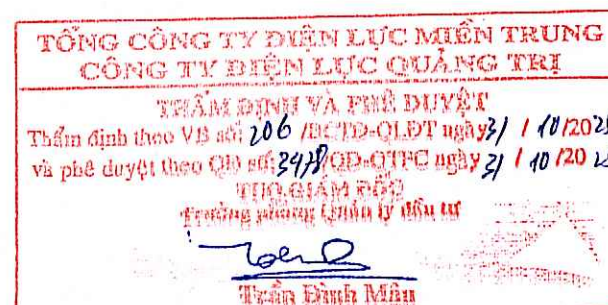 TỔNG CÔNG TY ĐIỆN LỰC MIỀN TRUNG
CÔNG TY ĐIỆN LỰC QUẢNG TRỊ
THẨM ĐỊNH VÀ PHÊ DUYỆT
Thẩm định theo VB số: 206 /BCTĐ-QLĐT ngày 31 / 10 /202
và phê duyệt theo QĐ số: 3478/QĐ-QTPC ngày 31 / 10 /20
TUQ.GIÁM ĐỐC
Trưởng phòng Quản lý đầu tư
Trần Đình Mâu